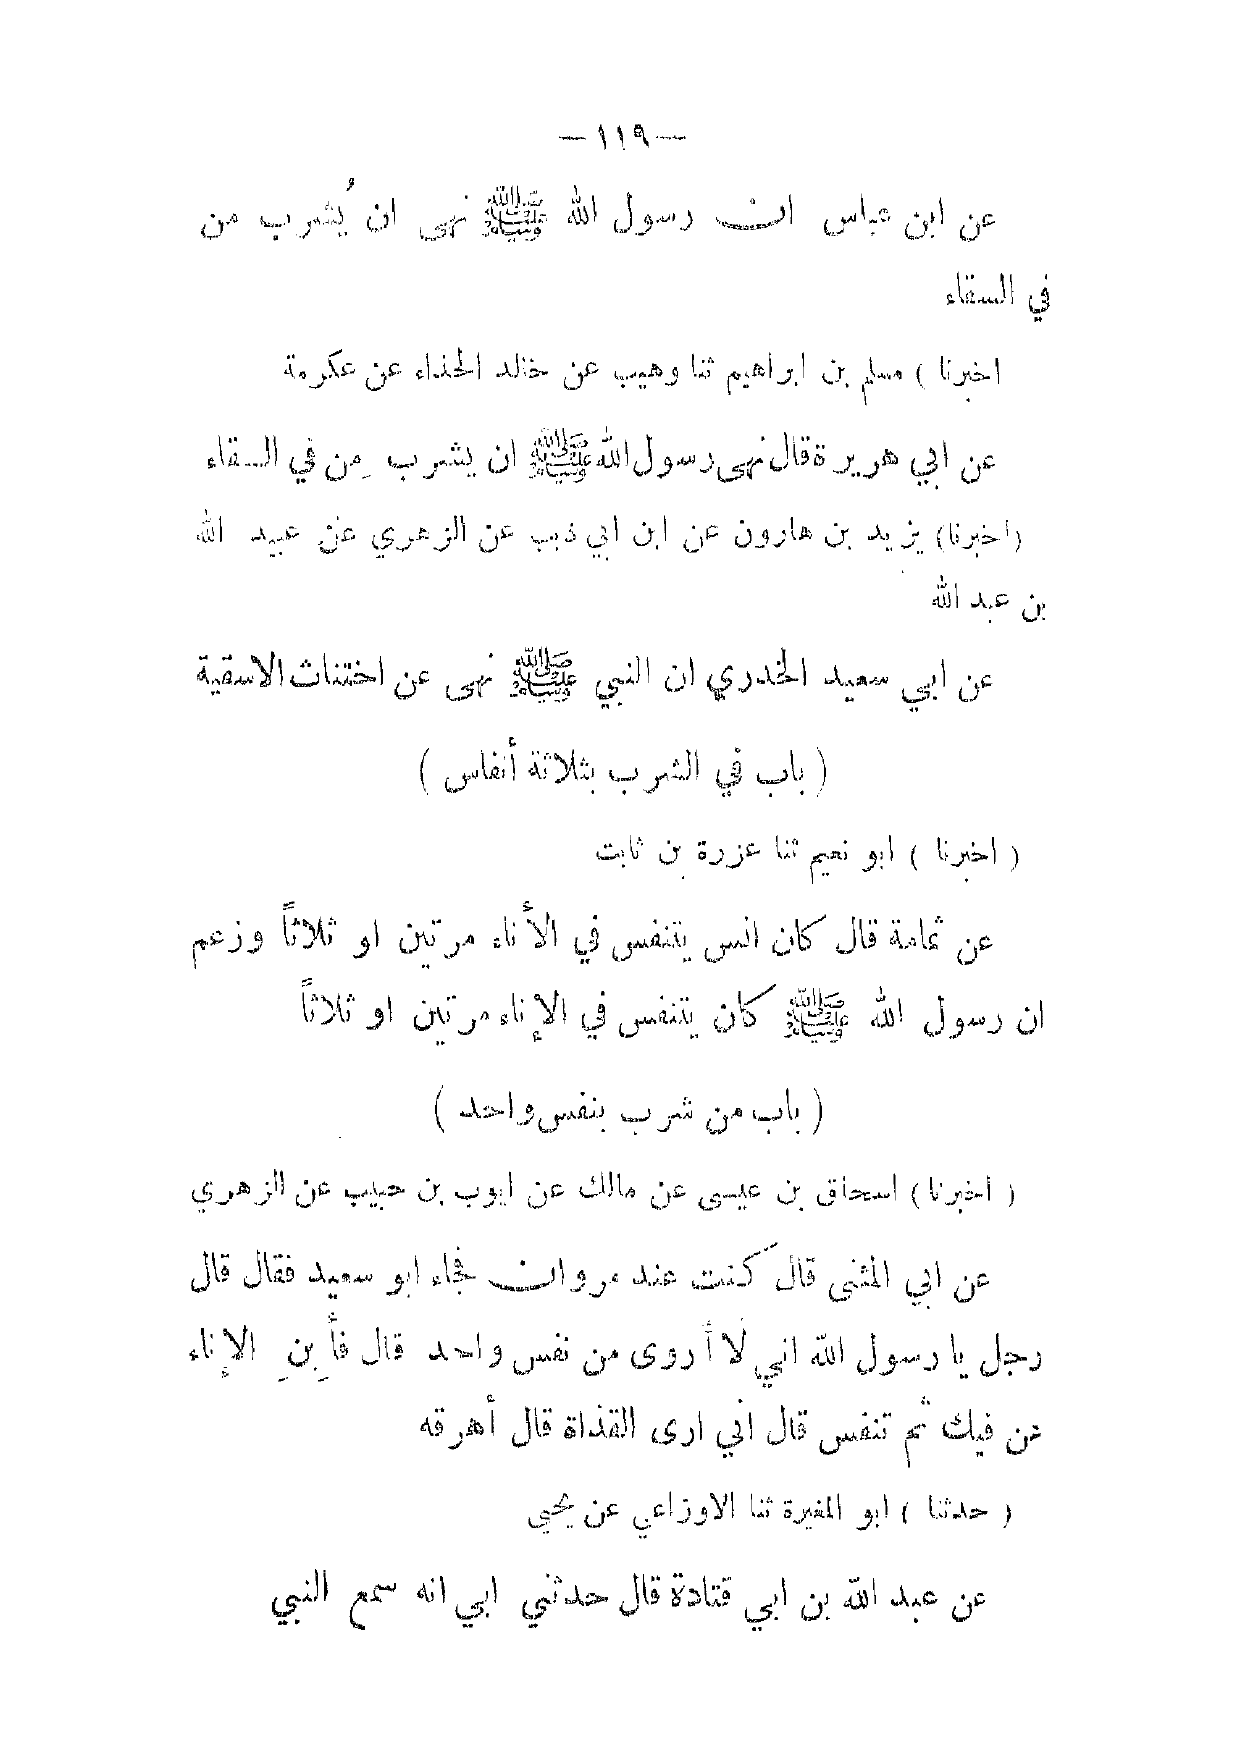 — ١١٩ —
عن ابن عباس ان رسول الله ﷺ نهى ان يُشرب من
في السقاء
اخبرنا ) مسلم بن ابراهيم ثنا وهيب عن خالد الحذاء عن عكرمة
عن ابي هريرة قال نهى رسول الله ﷺ ان يشرب من في السقاء
(اخبرنا) يزيد بن هارون عن ابن ابي ذيب عن الزهري عن عبيد الله
بن عبد الله
عن ابي سعيد الخدري ان النبي ﷺ نهى عن اختناث الاسقية
( باب في الشرب بثلاثة أنفاس )
( اخبرنا ) ابو نعيم ثنا عزرة بن ثابت
عن ثمامة قال كان انس يتنفس في الأناء مرتين او ثلاثاً وزعم
ان رسول الله ﷺ كان يتنفس في الإناء مرتين او ثلاثاً
( باب من شرب بنفس واحد )
( أخبرنا ) اسحاق بن عيسى عن مالك عن ايوب بن حبيب عن الزهري
عن ابي المثنى قال كنت عند مروان فجاء ابو سعيد فقال قال
رجل يا رسول الله اني لا أروى من نفس واحد قال فأَبِنِ الإناء
عن فيك ثم تنفس قال اني ارى القذاة قال أهرقه
( حدثنا ) ابو المغيرة ثنا الاوزاعي عن يحيى
عن عبد الله بن ابي قتادة قال حدثني ابي انه سمع النبي